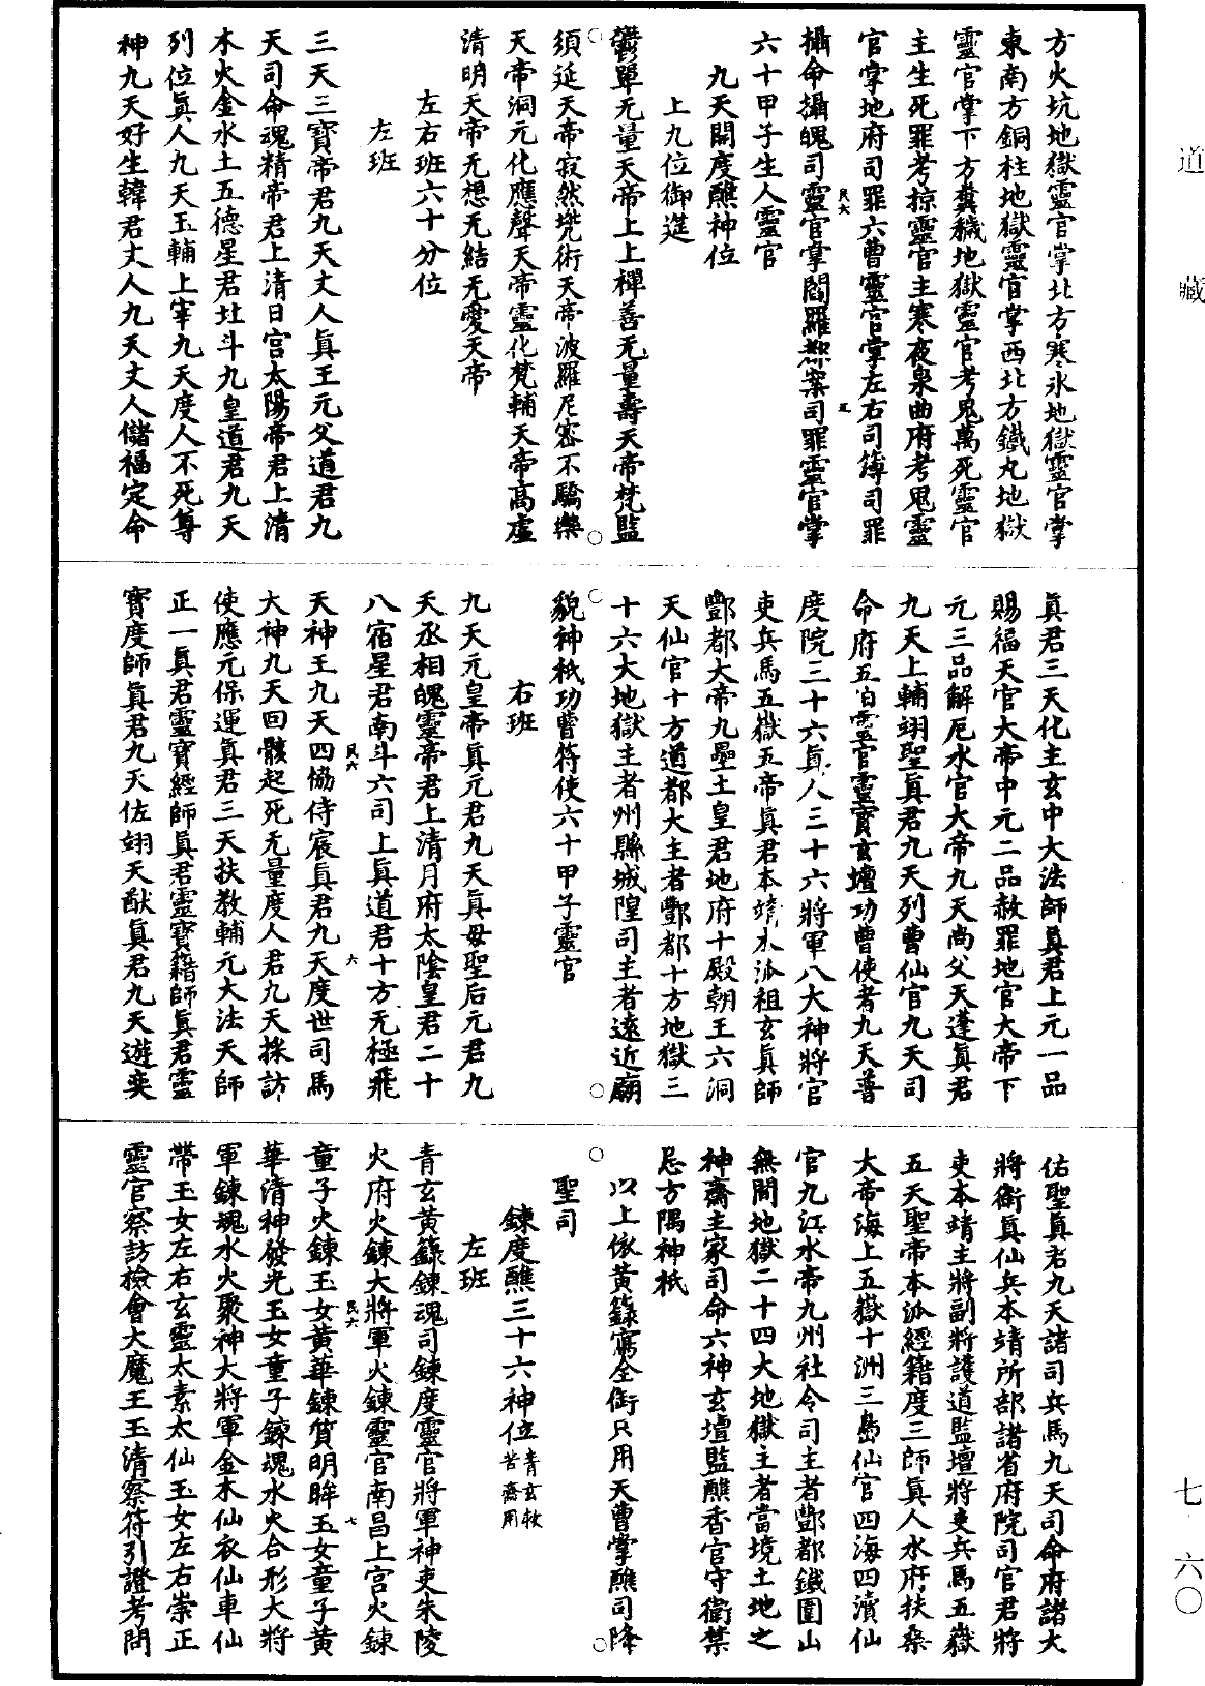 道藏
七·六〇
方火坑地獄靈官掌北方寒氷地獄靈官掌
東南方銅柱地獄靈官掌西北方鐵丸地獄
靈官掌下方糞穢地獄靈官考鬼萬死靈官
主生死罪考掠靈官主寒夜泉曲府考鬼靈
官掌地府司罪六曹靈官掌左右司簿司罪
民六 五
攝命攝魄司靈官掌閻羅都案司罪靈官掌
六十甲子生人靈官
九天開度醮神位
上九位御進
鬱單无量天帝上上禪善无量壽天帝梵監
須延天帝寂然兠術天帝波羅尼密不驕樂
天帝洞元化應聲天帝靈化梵輔天帝高虛
清明天帝无想无結无愛天帝
左右班六十分位
左班
三天三寶帝君九天丈人眞王元父道君九
天司命魂精帝君上清日宮太陽帝君上清
木火金水土五德星君北斗九皇道君九天
列位眞人九天玉輔上宰九天度人不死尊
神九天好生韓君丈人九天丈人儲福定命
眞君三天化主玄中大法師眞君上元一品
賜福天官大帝中元二品赦罪地官大帝下
元三品解厄水官大帝九天尚父天蓬眞君
九天上輔翊聖眞君九天列曹仙官九天司
命府五百靈官靈寶玄壇功曹使者九天普
度院三十六眞人三十六將軍八大神將官
吏兵馬五嶽五帝眞君本靖本派祖玄眞師
酆都大帝九壘土皇君地府十殿朝王六洞
天仙官十方道都大主者酆都十方地獄三
十六大地獄主者州縣城隍司主者遠近廟
貌神祇功曹符使六十甲子靈官
右班
九天元皇帝眞元君九天眞母聖后元君九
天丞相魄靈帝君上清月府太陰皇君二十
八宿星君南斗六司上眞道君十方无極飛
民六 六
天神王九天四協侍宸眞君九天度世司馬
大神九天回骸起死无量度人君九天採訪
使應元保運眞君三天扶教輔元大法天師
正一眞君靈寶經師眞君靈寶籍師眞君靈
寶度師眞君九天佐翊天猷眞君九天遊奕
佑聖眞君九天諸司兵馬九天司命府諸大
將衛眞仙兵本靖所部諸省府院司官君將
吏本靖主將副將護道監壇將吏兵馬五嶽
五天聖帝本派經籍度三師眞人水府扶桑
大帝海上五嶽十洲三島仙官四海四瀆仙
官九江水帝九州社令司主者酆都鐵圍山
無間地獄二十四大地獄主者當境土地之
神齋主家司命六神玄壇監醮香官守衛禁
忌方隅神祇
以上依黃籙寫全銜只用天曹掌醮司降
聖司
鍊度醮三十六神位青玄救苦齋用
左班
青玄黃籙鍊魂司鍊度靈官將軍神吏朱陵
火府火鍊大將軍火鍊靈官南昌上宮火鍊
民六 七
童子火鍊玉女黃華鍊質明眸玉女童子黃
華清神發光玉女童子鍊魂水火合形大將
軍鍊魂水火聚神大將軍金木仙衣仙車仙
帶玉女左右玄靈太素太仙玉女左右崇正
靈官察訪撿會大魔王玉清察符引證考問